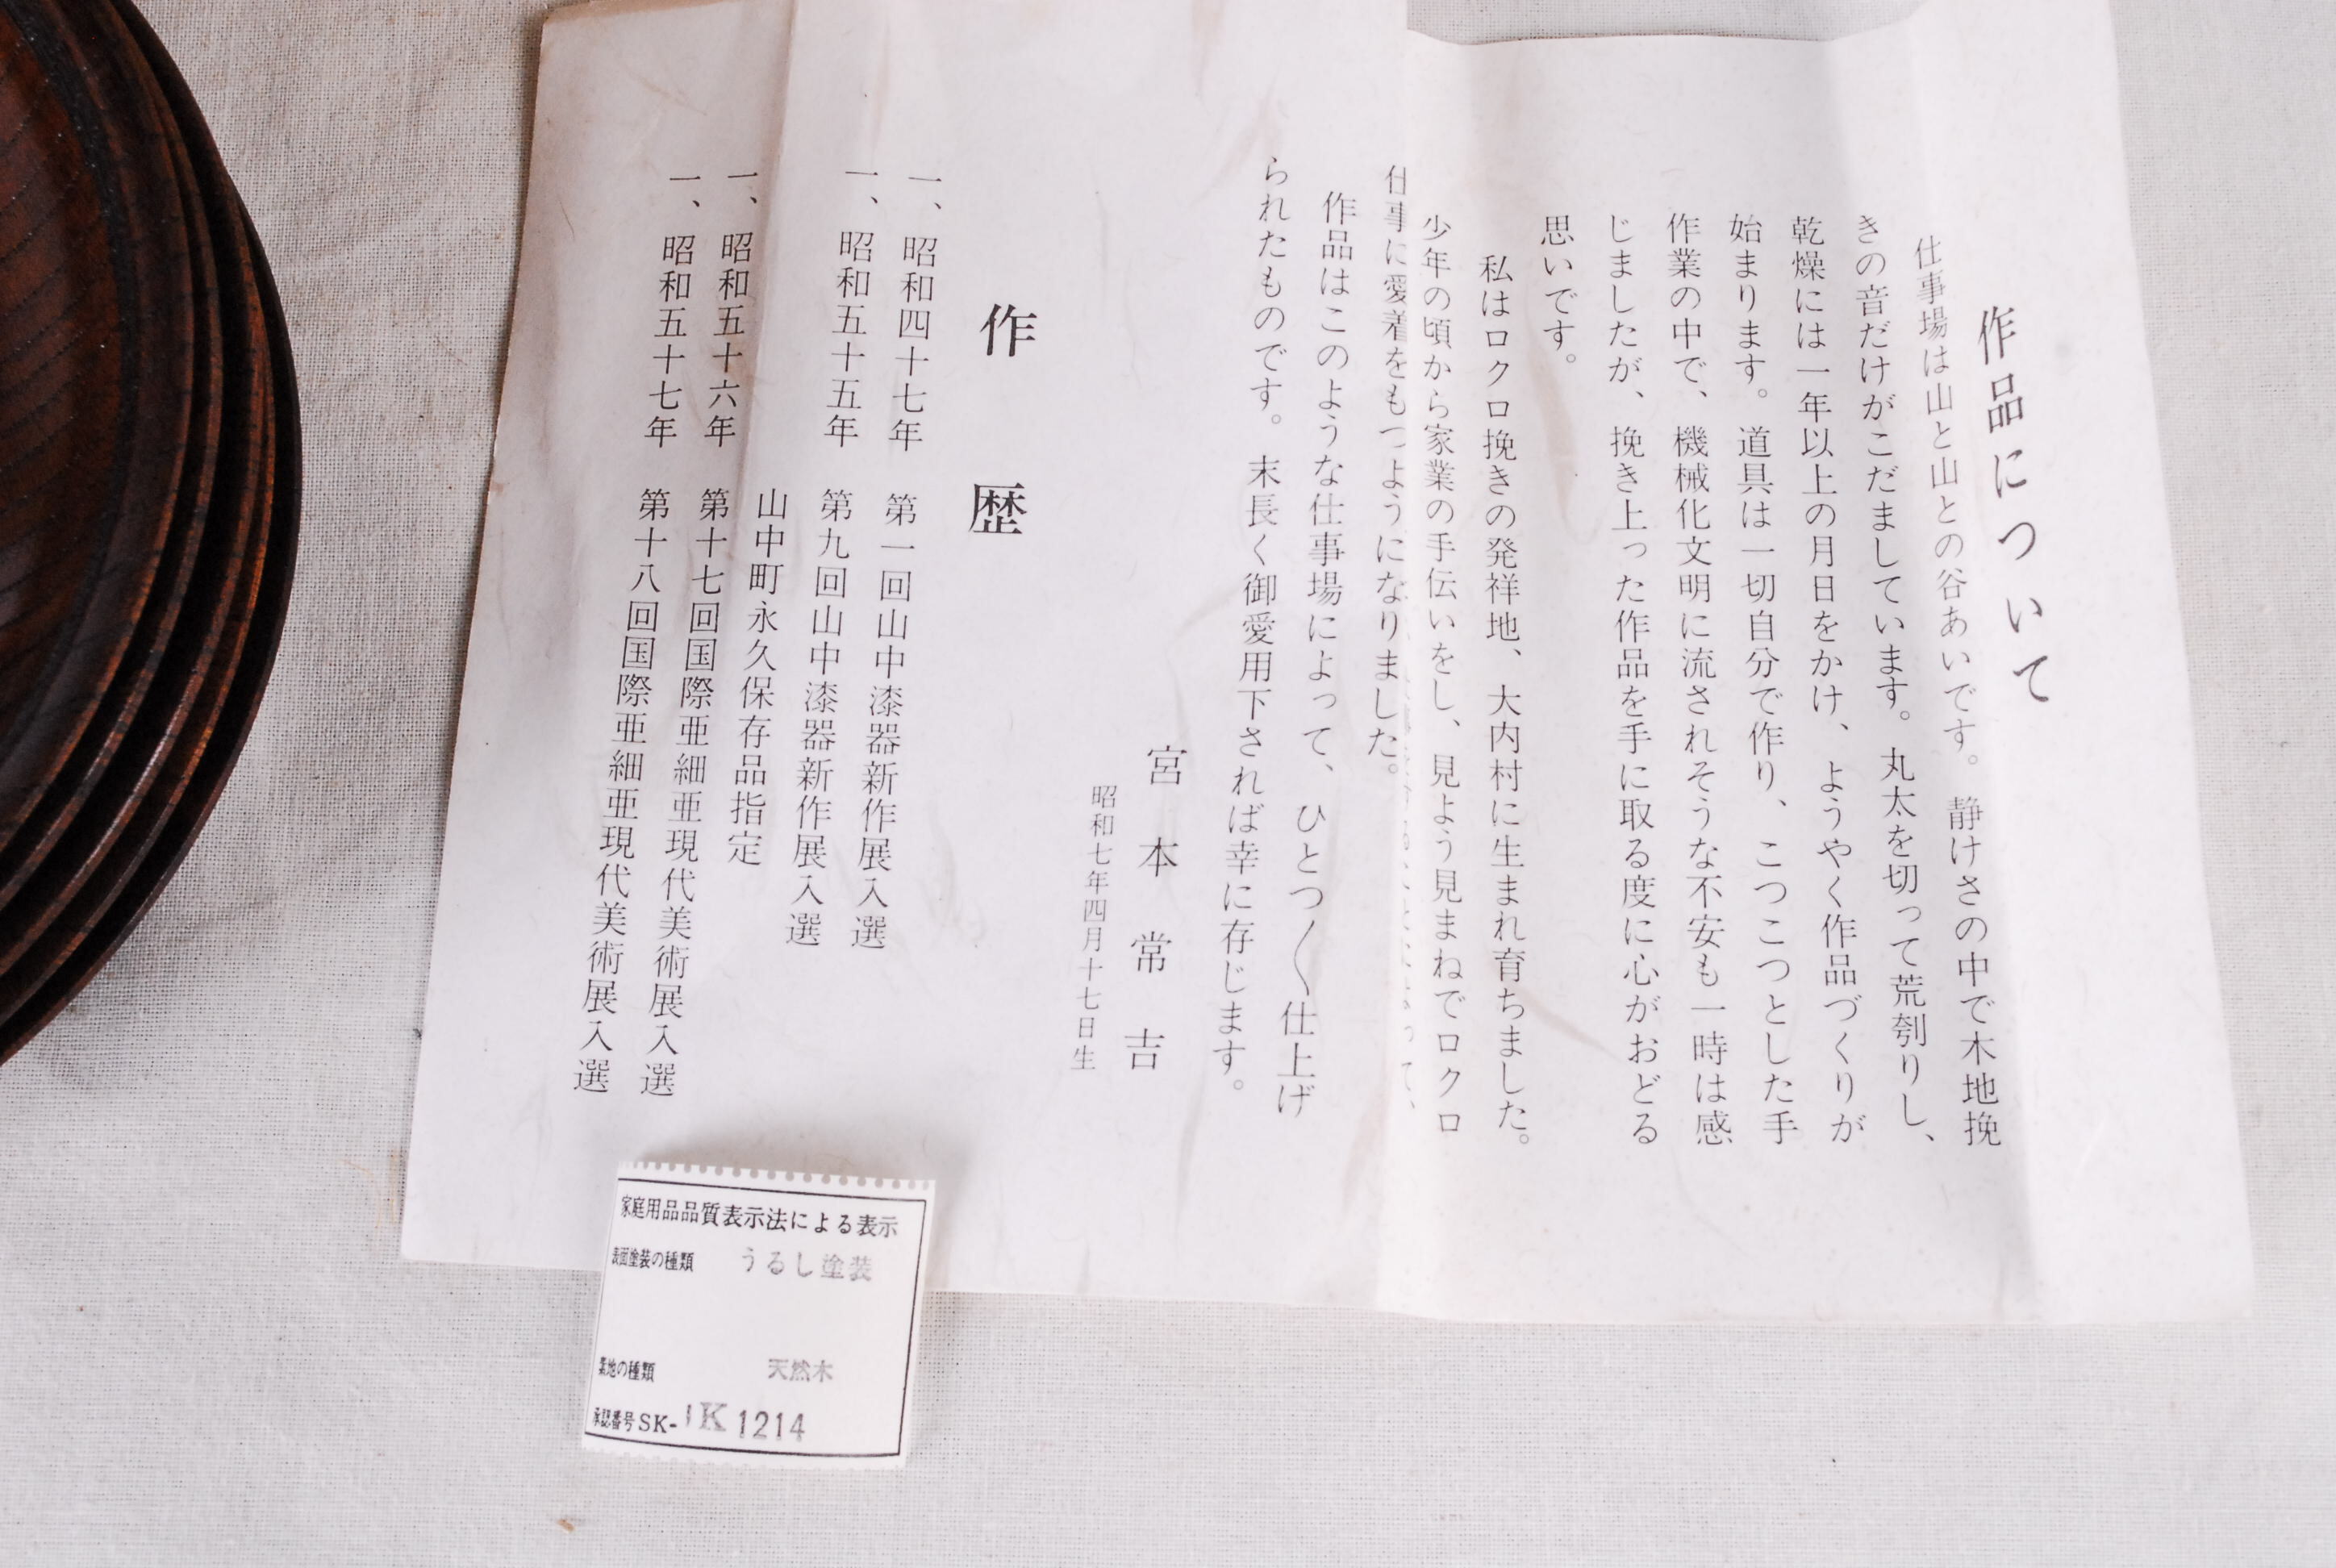 作品について
仕事場は山と山との谷あいです。静けさの中で木地挽
きの音だけがこだましています。丸太を切って荒刳りし、
乾燥には一年以上の月日をかけ、ようやく作品づくりが
始まります。道具は一切自分で作り、こつこつとした手
作業の中で、機械化文明に流されそうな不安も一時は感
じましたが、挽き上った作品を手に取る度に心がおどる
思いです。
私はロクロ挽きの発祥地、大内村に生まれ育ちました。
少年の頃から家業の手伝いをし、見よう見まねでロクロ
仕事に愛着をもつようになりました。
作品はこのような仕事場によって、ひとつ〳〵仕上げ
られたものです。末長く御愛用下されば幸に存じます。
宮本常吉
昭和七年四月十七日生
作歴
一、昭和四十七年 第一回山中漆器新作展入選
一、昭和五十五年 第九回山中漆器新作展入選
山中町永久保存品指定
一、昭和五十六年 第十七回国際亜細亜現代美術展入選
一、昭和五十七年 第十八回国際亜細亜現代美術展入選
家庭用品品質表示法による表示
表面塗装の種類 うるし塗装
素地の種類 天然木
承認番号SK-IK1214